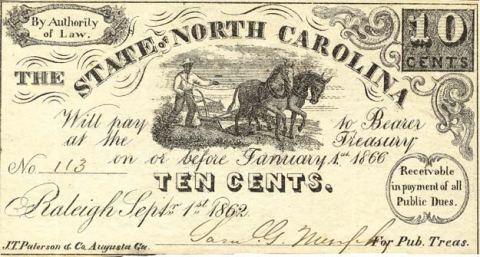 By Authority
of Law.
10
CENTS
THE STATE OF NORTH CAROLINA
Will pay to Bearer
at the Treasury
No 113 on or before January 1st 1866
TEN CENTS.
Receivable
in payment of all
Public Dues.
Raleigh Septr 1st 1862.
Sam. G.
For Pub. Treas.
J.T. Paterson & Co. Augusta Ga.